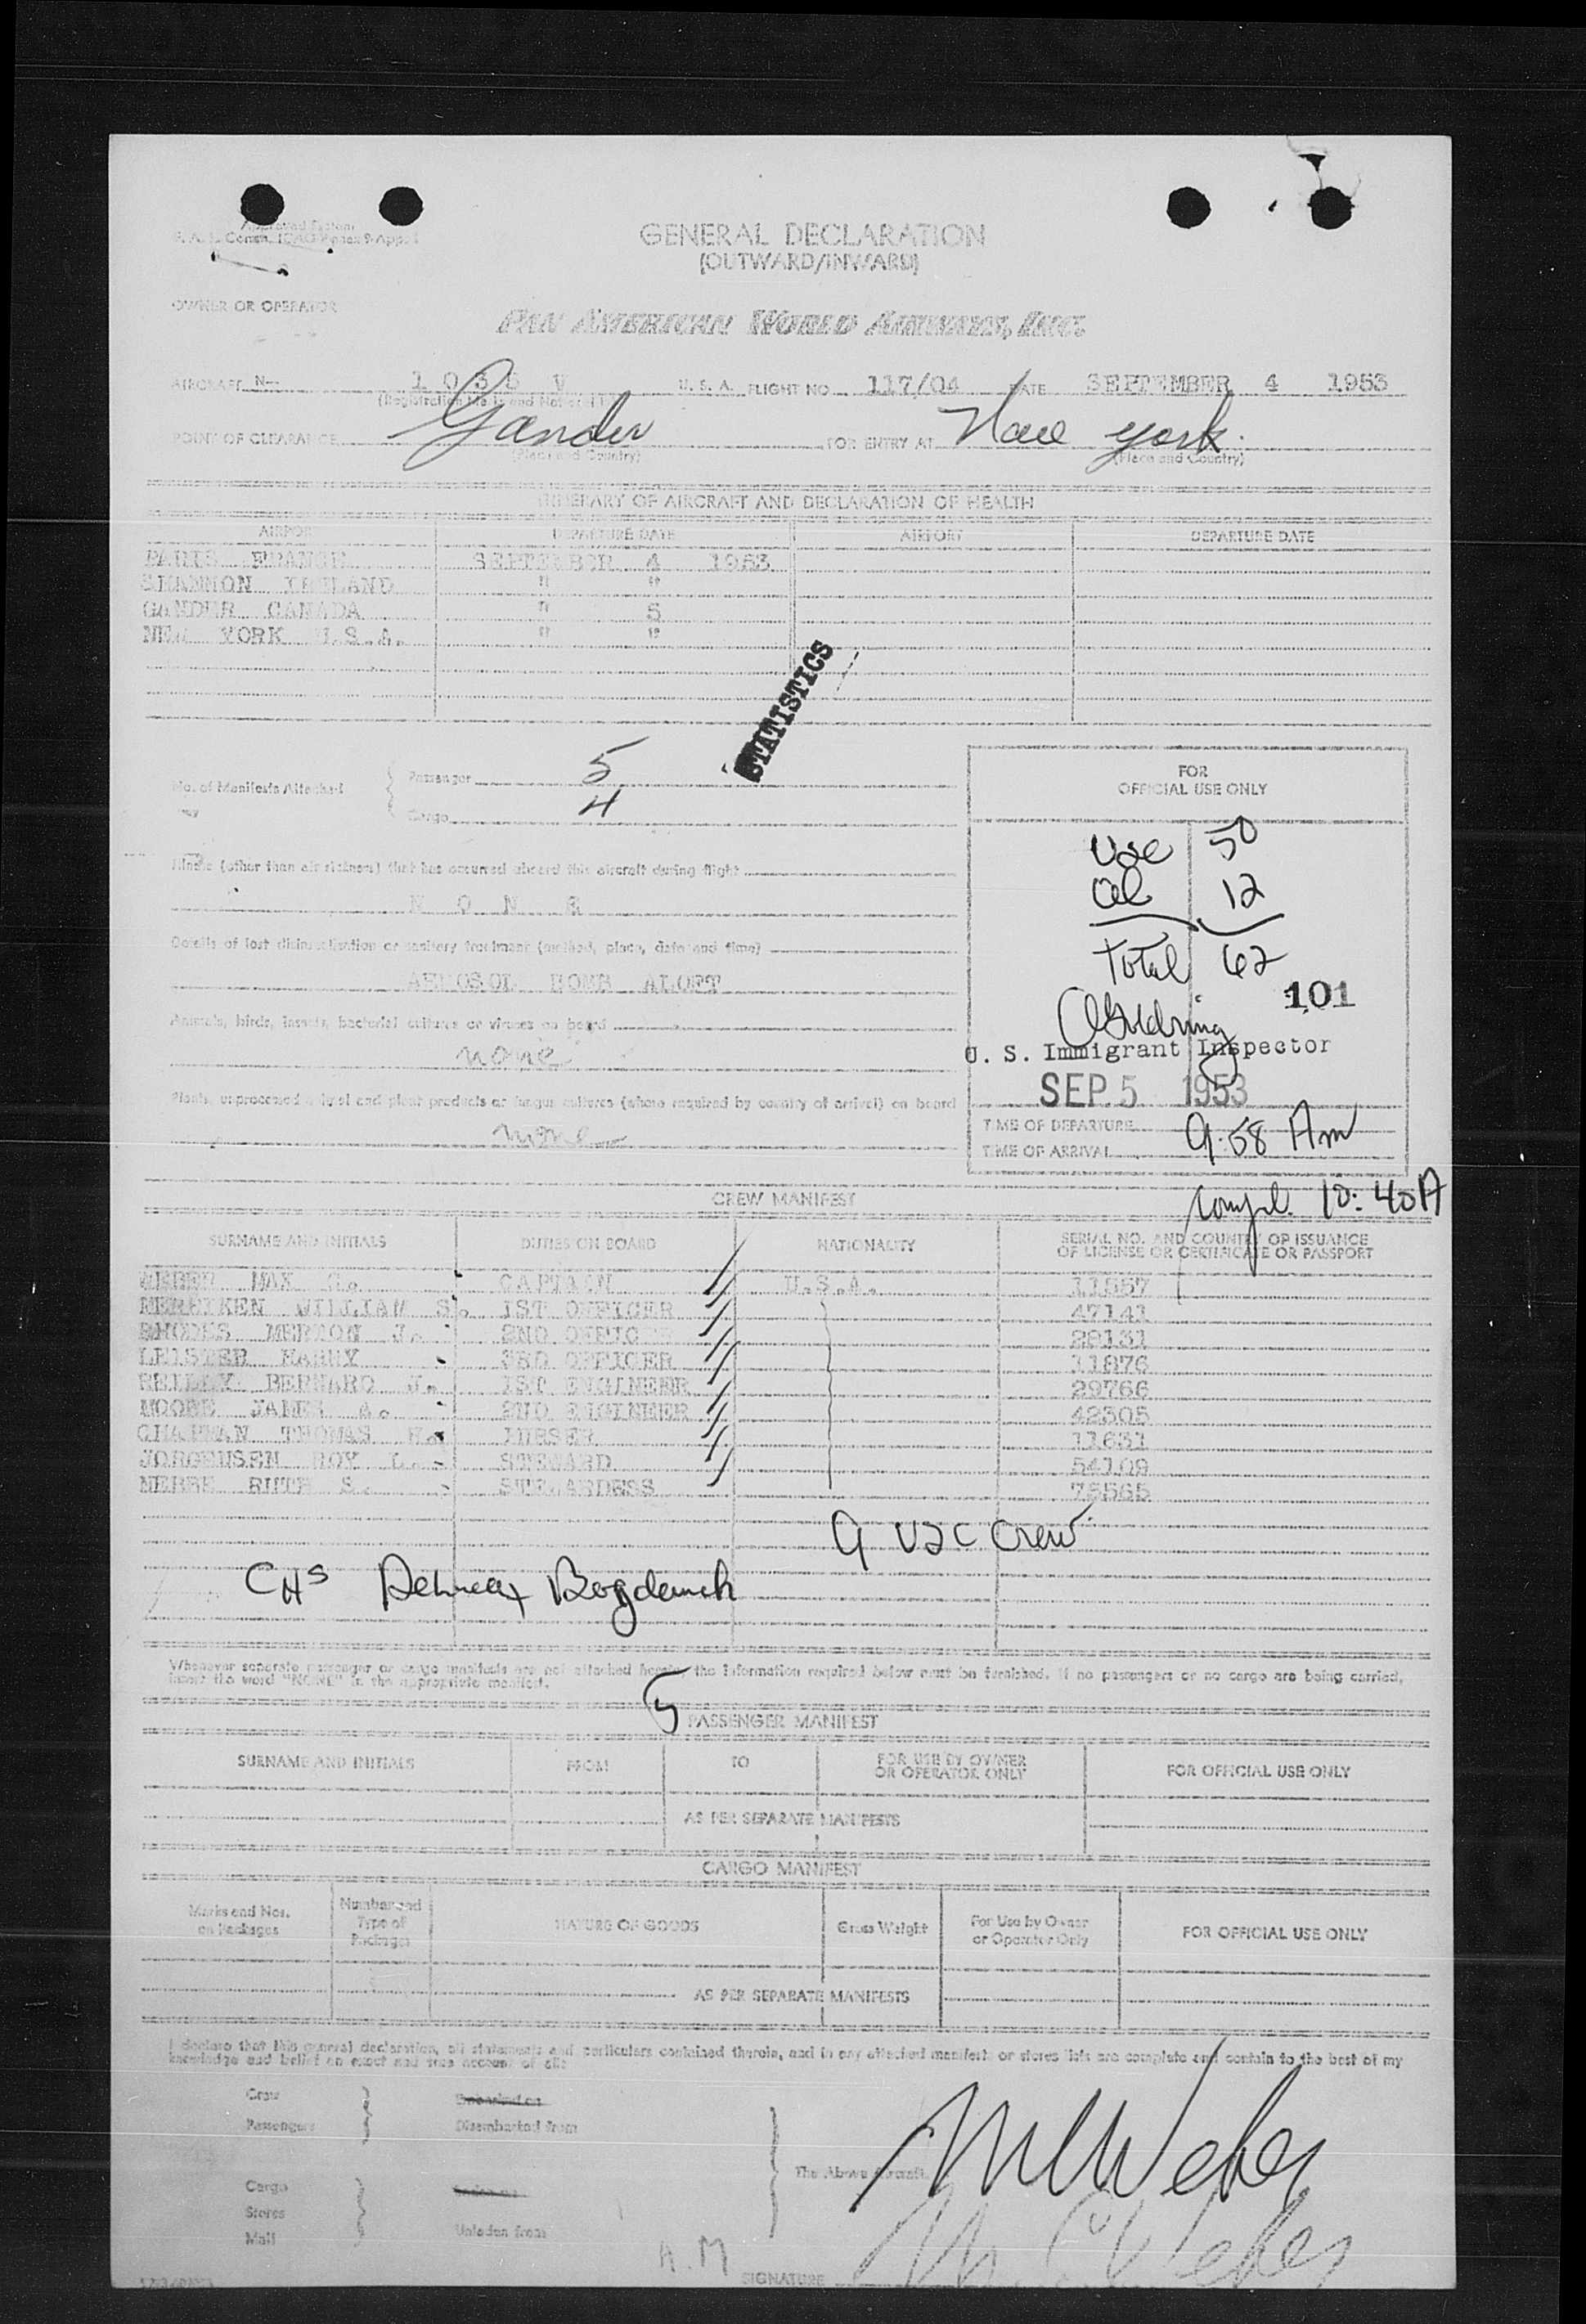 GENERAL DECLARATION
(OUTWARD/INWARD)
OWNER OR OPERATOR
PAN AMERICAN WORLD AIRWAYS, INC.
AIRCRAFT N- V U. S. A. FLIGHT NO. 117/04 DATE SEPTEMBER 4 1953
POINT OF CLEARANCE Gander FOR ENTRY AT New York
(Place and Country) (Place and Country)
ITINERARY OF AIRCRAFT AND DECLARATION OF HEALTH
AIRPORT DEPARTURE DATE AIRPORT DEPARTURE DATE
PARIS FRANCE SEPTEMBER 4 1953
SHANNON IRELAND " "
GANDER CANADA " 5
NEW YORK U.S.A. " "
STATISTICS
No. of Manifests Attached
Passenger 5
Cargo 4
FOR
OFFICIAL USE ONLY
Illness (other than air sickness) that has occurred aboard this aircraft during flight
N O N E
Details of last disinsectization or sanitary treatment (method, place, date and time)
AEROSOL BOMB ALOFT
Animals, birds, insects, bacterial cultures or viruses on board
none
Plants, unprocessed plant products or fungus cultures (where required by country of arrival) on board
none
Usc 50
al 12
Total 62
101
U. S. Immigrant Inspector
SEP. 5 1953
TIME OF DEPARTURE
TIME OF ARRIVAL 9:58 Am
Compl. 10:40A
CREW MANIFEST
SURNAME AND INITIALS DUTIES ON BOARD NATIONALITY SERIAL NO. AND COUNTRY OF ISSUANCE
OF LICENSE OR CERTIFICATE OR PASSPORT
WEBER MAX CAPTAIN U.S.A. 11557
WILLIAM S. 1ST OFFICER 47141
RHODES MERTON J. 2ND OFFICER 28131
LEISTER HARRY 3RD OFFICER 11876
REILLY BERNARD J. 1ST ENGINEER 29766
MOORE JAMES A. 2ND ENGINEER 42305
CHAPMAN THOMAS PURSER 11631
JORGENSEN ROY L. STEWARD 54109
RUTH S. STEWARDESS 75565
9 USC Crew
CHS
Whenever separate passenger or cargo manifests are not attached hereto, the information required below must be furnished. If no passengers or no cargo are being carried,
insert the word "NONE" in the appropriate manifest.
5
PASSENGER MANIFEST
SURNAME AND INITIALS FROM TO FOR USE BY OWNER
OR OPERATOR ONLY FOR OFFICIAL USE ONLY
AS PER SEPARATE MANIFESTS
CARGO MANIFEST
Marks and Nos.
on Packages Number and
Type of
Packages NATURE OF GOODS Gross Weight For Use by Owner
or Operator Only FOR OFFICIAL USE ONLY
AS PER SEPARATE MANIFESTS
I declare that this general declaration, all statements and particulars contained therein, and in any attached manifests or stores lists are complete and contain to the best of my
knowledge and belief an exact and true account of all:
Crew
Passengers
Embarked on
Disembarked from
Cargo
Stores
Mail
Unladen from
The Above Aircraft
M C Weber
M C Weber
A.M
SIGNATURE